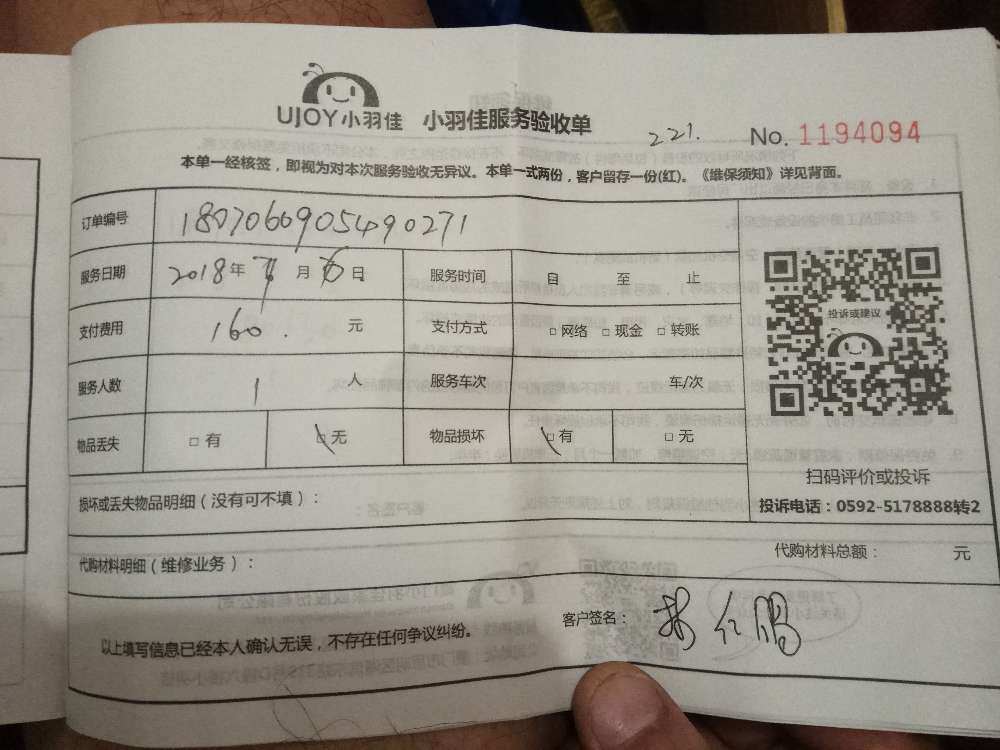 UJOY小羽佳 小羽佳服务验收单
221. No. 1194094
本单一经核签，即视为对本次服务验收无异议。本单一式两份，客户留存一份(红)。《维保须知》详见背面。
订单编号 1807066905490271
服务日期 2018年 月 6日 服务时间 自 至 止
投诉或建议
支付费用 160. 元 支付方式 □网络 □现金 □转账
服务人数 1 人 服务车次 车/次
物品丢失 □有 □无 物品损坏 □有 □无
扫码评价或投诉
损坏或丢失物品明细（没有可不填）：
投诉电话：0592-5178888转2
代购材料明细（维修业务）： 代购材料总额： 元
以上填写信息已经本人确认无误，不存在任何争议纠纷。 客户签名：